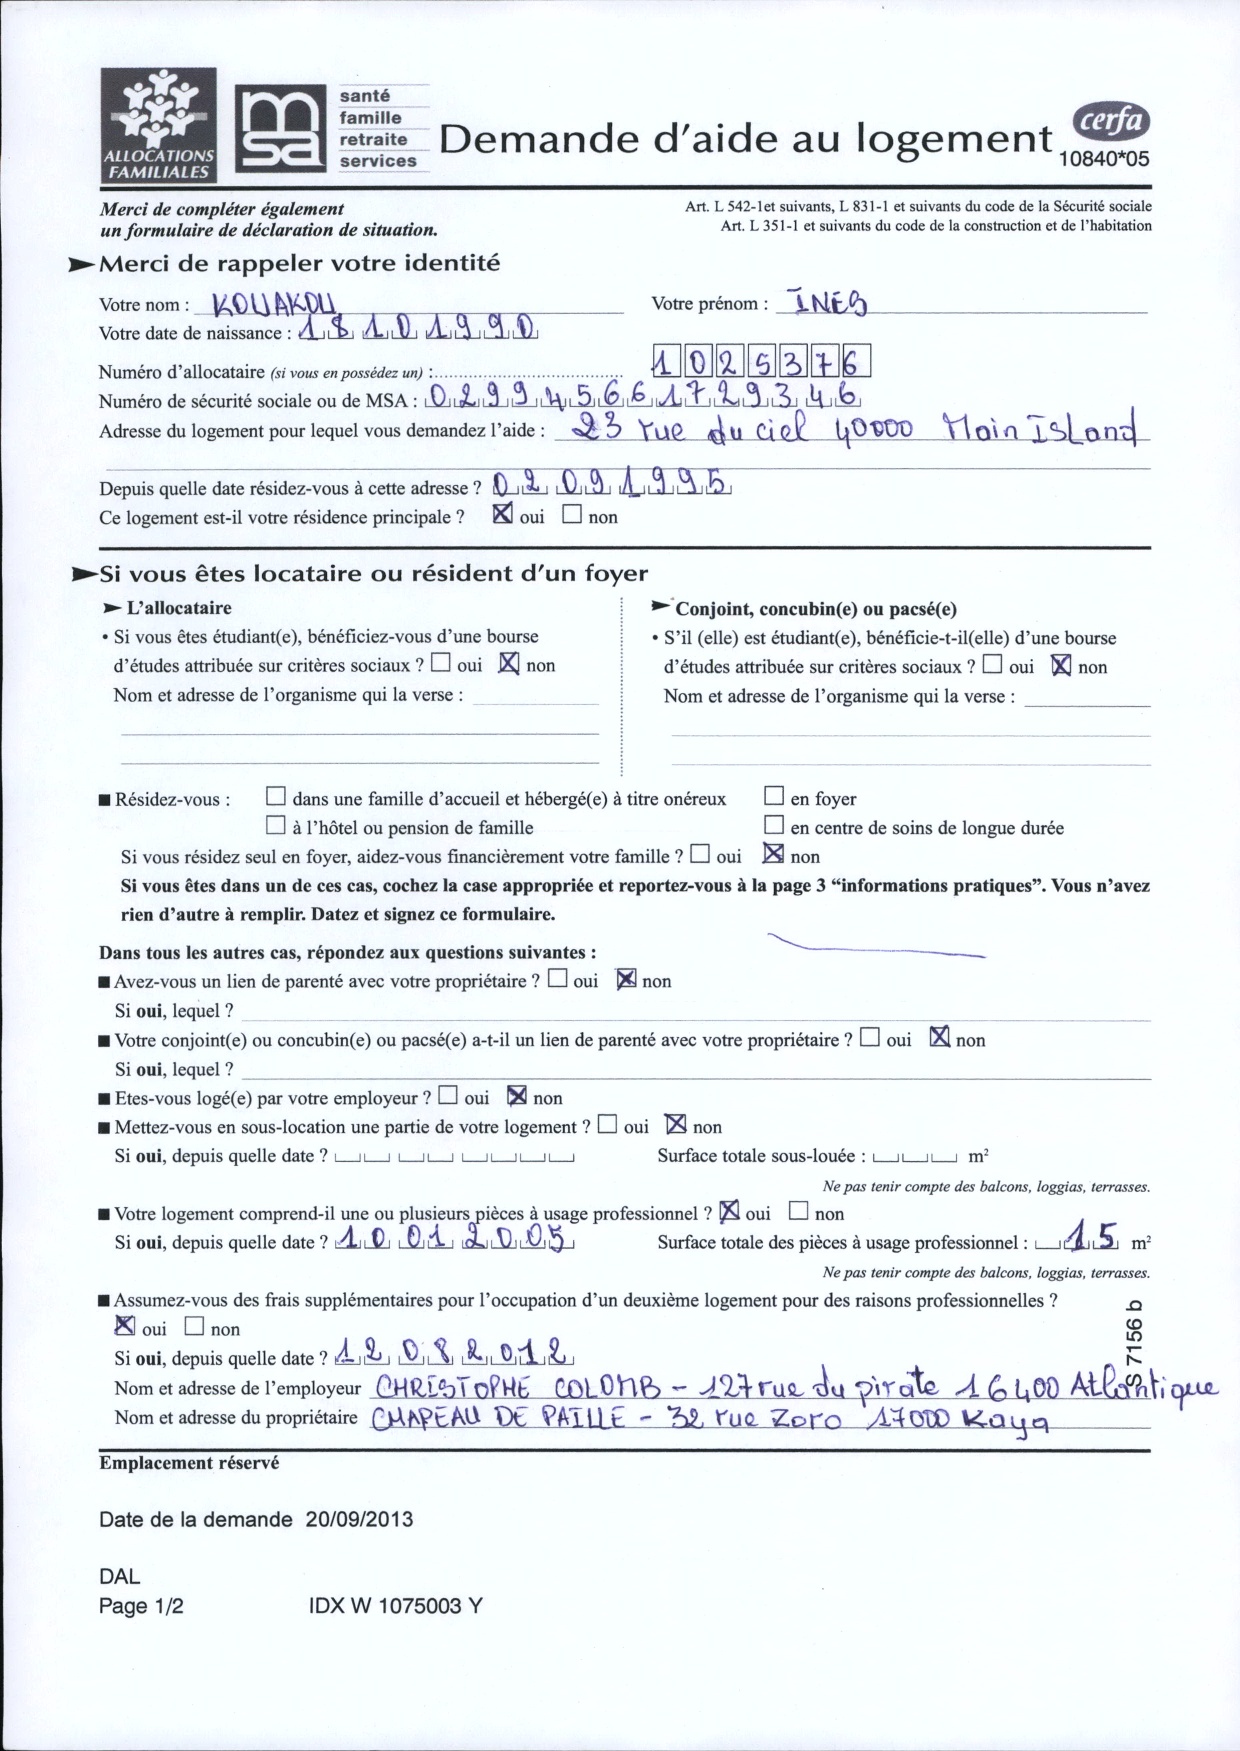 ALLOCATIONS
FAMILIALES
msa
santé
famille
retraite
services
Demande d'aide au logement
cerfa
10840*05
Merci de compléter également
un formulaire de déclaration de situation.
Art. L 542-1et suivants, L 831-1 et suivants du code de la Sécurité sociale
Art. L 351-1 et suivants du code de la construction et de l'habitation
Merci de rappeler votre identité
Votre nom : KOUAKOU Votre prénom : INES
Votre date de naissance : 18 10 1990
Numéro d'allocataire (si vous en possédez un) : 1025376
Numéro de sécurité sociale ou de MSA : 029945661729346
Adresse du logement pour lequel vous demandez l'aide : 23 rue du ciel 40000 Main Island
Depuis quelle date résidez-vous à cette adresse ? 02 09 1995
Ce logement est-il votre résidence principale ? ☒ oui ☐ non
Si vous êtes locataire ou résident d'un foyer
L'allocataire
• Si vous êtes étudiant(e), bénéficiez-vous d'une bourse
d'études attribuée sur critères sociaux ? ☐ oui ☒ non
Nom et adresse de l'organisme qui la verse :
Conjoint, concubin(e) ou pacsé(e)
• S'il (elle) est étudiant(e), bénéficie-t-il(elle) d'une bourse
d'études attribuée sur critères sociaux ? ☐ oui ☒ non
Nom et adresse de l'organisme qui la verse :
■ Résidez-vous : ☐ dans une famille d'accueil et hébergé(e) à titre onéreux ☐ en foyer
☐ à l'hôtel ou pension de famille ☐ en centre de soins de longue durée
Si vous résidez seul en foyer, aidez-vous financièrement votre famille ? ☐ oui ☒ non
Si vous êtes dans un de ces cas, cochez la case appropriée et reportez-vous à la page 3 "informations pratiques". Vous n'avez
rien d'autre à remplir. Datez et signez ce formulaire.
Dans tous les autres cas, répondez aux questions suivantes :
■ Avez-vous un lien de parenté avec votre propriétaire ? ☐ oui ☒ non
Si oui, lequel ?
■ Votre conjoint(e) ou concubin(e) ou pacsé(e) a-t-il un lien de parenté avec votre propriétaire ? ☐ oui ☒ non
Si oui, lequel ?
■ Etes-vous logé(e) par votre employeur ? ☐ oui ☒ non
■ Mettez-vous en sous-location une partie de votre logement ? ☐ oui ☒ non
Si oui, depuis quelle date ? Surface totale sous-louée : m²
Ne pas tenir compte des balcons, loggias, terrasses.
■ Votre logement comprend-il une ou plusieurs pièces à usage professionnel ? ☒ oui ☐ non
Si oui, depuis quelle date ? 10 01 2005 Surface totale des pièces à usage professionnel : 15 m²
Ne pas tenir compte des balcons, loggias, terrasses.
■ Assumez-vous des frais supplémentaires pour l'occupation d'un deuxième logement pour des raisons professionnelles ?
☒ oui ☐ non
Si oui, depuis quelle date ? 12 08 2012
Nom et adresse de l'employeur CHRISTOPHE COLOMB - 127 rue du pirate 16400 Atlantique
Nom et adresse du propriétaire CHAPEAU DE PAILLE - 32 rue Zoro 17000 Kaya
S 7156 b
Emplacement réservé
Date de la demande 20/09/2013
DAL
Page 1/2 IDX W 1075003 Y